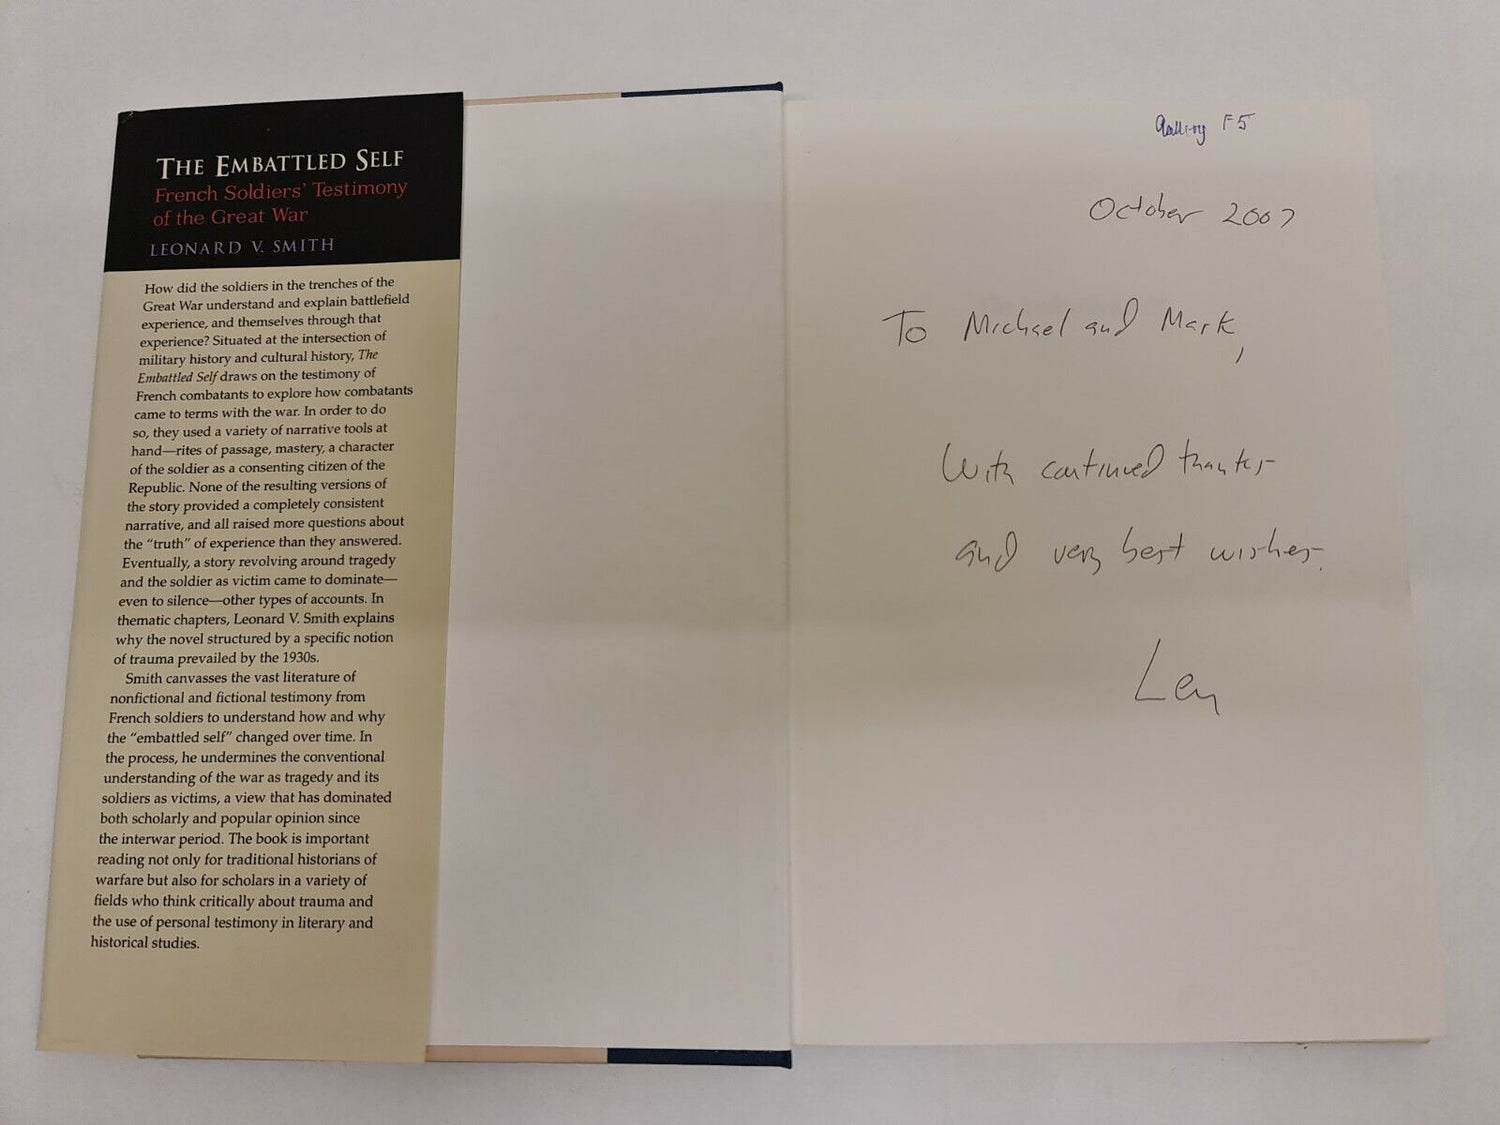 THE EMBATTLED SELF
French Soldiers' Testimony
of the Great War
LEONARD V. SMITH
How did the soldiers in the trenches of the
Great War understand and explain battlefield
experience, and themselves through that
experience? Situated at the intersection of
military history and cultural history, The
Embattled Self draws on the testimony of
French combatants to explore how combatants
came to terms with the war. In order to do
so, they used a variety of narrative tools at
hand—rites of passage, mastery, a character
of the soldier as a consenting citizen of the
Republic. None of the resulting versions of
the story provided a completely consistent
narrative, and all raised more questions about
the “truth” of experience than they answered.
Eventually, a story revolving around tragedy
and the soldier as victim came to dominate—
even to silence—other types of accounts. In
thematic chapters, Leonard V. Smith explains
why the novel structured by a specific notion
of trauma prevailed by the 1930s.
Smith canvasses the vast literature of
nonfictional and fictional testimony from
French soldiers to understand how and why
the “embattled self” changed over time. In
the process, he undermines the conventional
understanding of the war as tragedy and its
soldiers as victims, a view that has dominated
both scholarly and popular opinion since
the interwar period. The book is important
reading not only for traditional historians of
warfare but also for scholars in a variety of
fields who think critically about trauma and
the use of personal testimony in literary and
historical studies.
F5
October 2007
To Michael and Mark,
With continued thanks
and very best wishes.
Len